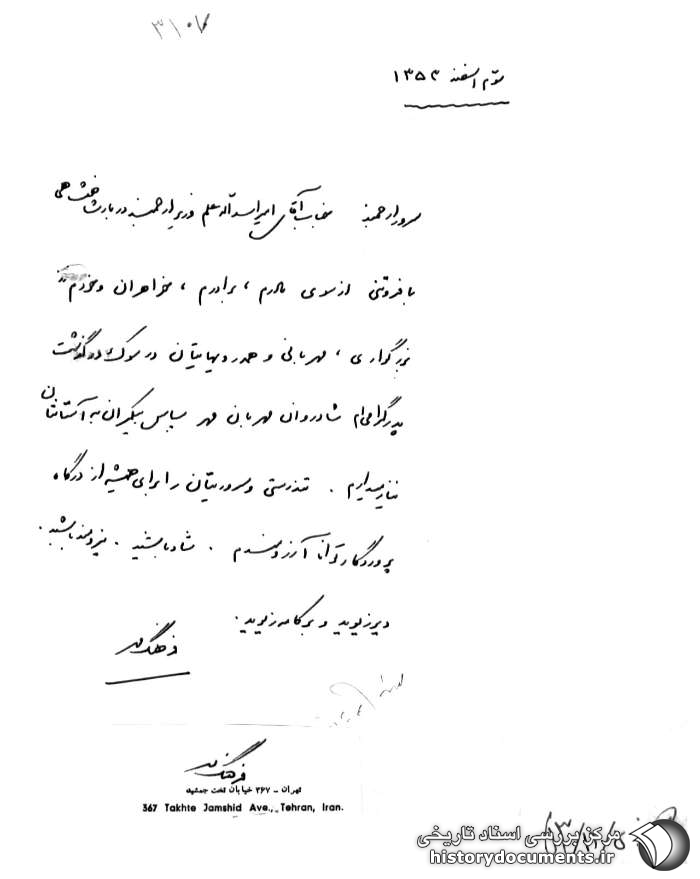 سوّم اسفند ۱۳۵۳
سرور ارجمند جناب آقای امیر اسداله علم وزیر ارجمند دربار شاهنشاهی
با فروتنی از سوی مادرم ، برادرم ، خواهران و خودم از
بزرگواری ، مهربانی و همدردیهایتان در سوک درگذشت
پدر گرامی‌ام شادروان مهربان مهر سپاس بیکران به آستانتان
نیاز میدارم . تندرستی و سروریتان را برای همیشه از درگاه
پروردگار توانا آرزومندم . شاد باشید . نیرومند باشید .
دیر زیوید و بر کامه زیوید .
فرهنگ مهر
فرهنگ مهر
تهران - ۳۶۷ خیابان تخت جمشید
367 Takhte Jamshid Ave., Tehran, Iran.
مرکز بررسی اسناد تاریخی
historydocuments.ir